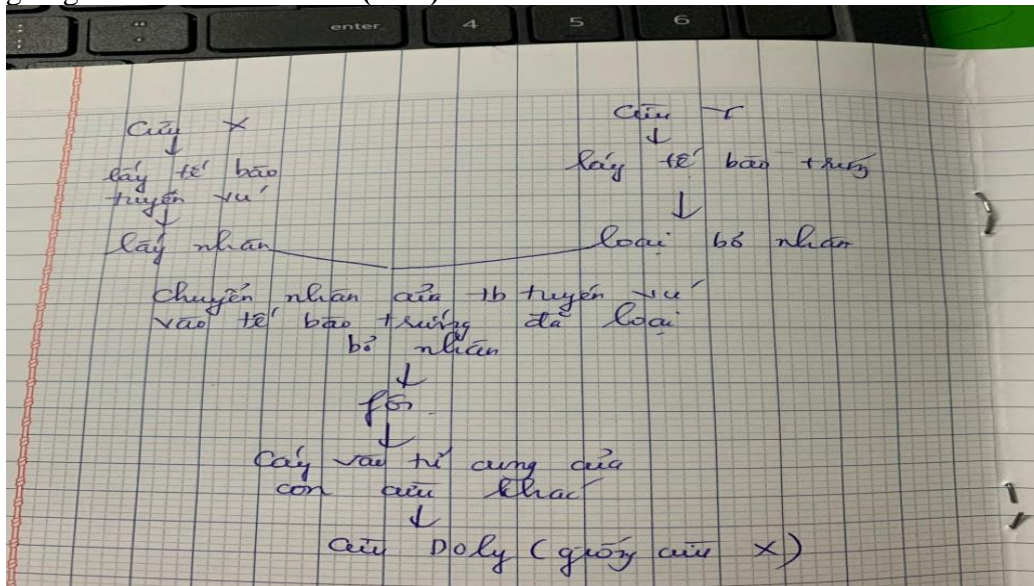 enter
4
5
6
Cừu X
lấy tế bào
tuyến vú
lấy nhân
Cừu Y
lấy tế bào trứng
loại bỏ nhân
Chuyển nhân của tb tuyến vú
vào tế bào trứng đã loại
bỏ nhân
phôi
Cấy vào tử cung của
con cừu khác
Cừu Doly (giống cừu X)